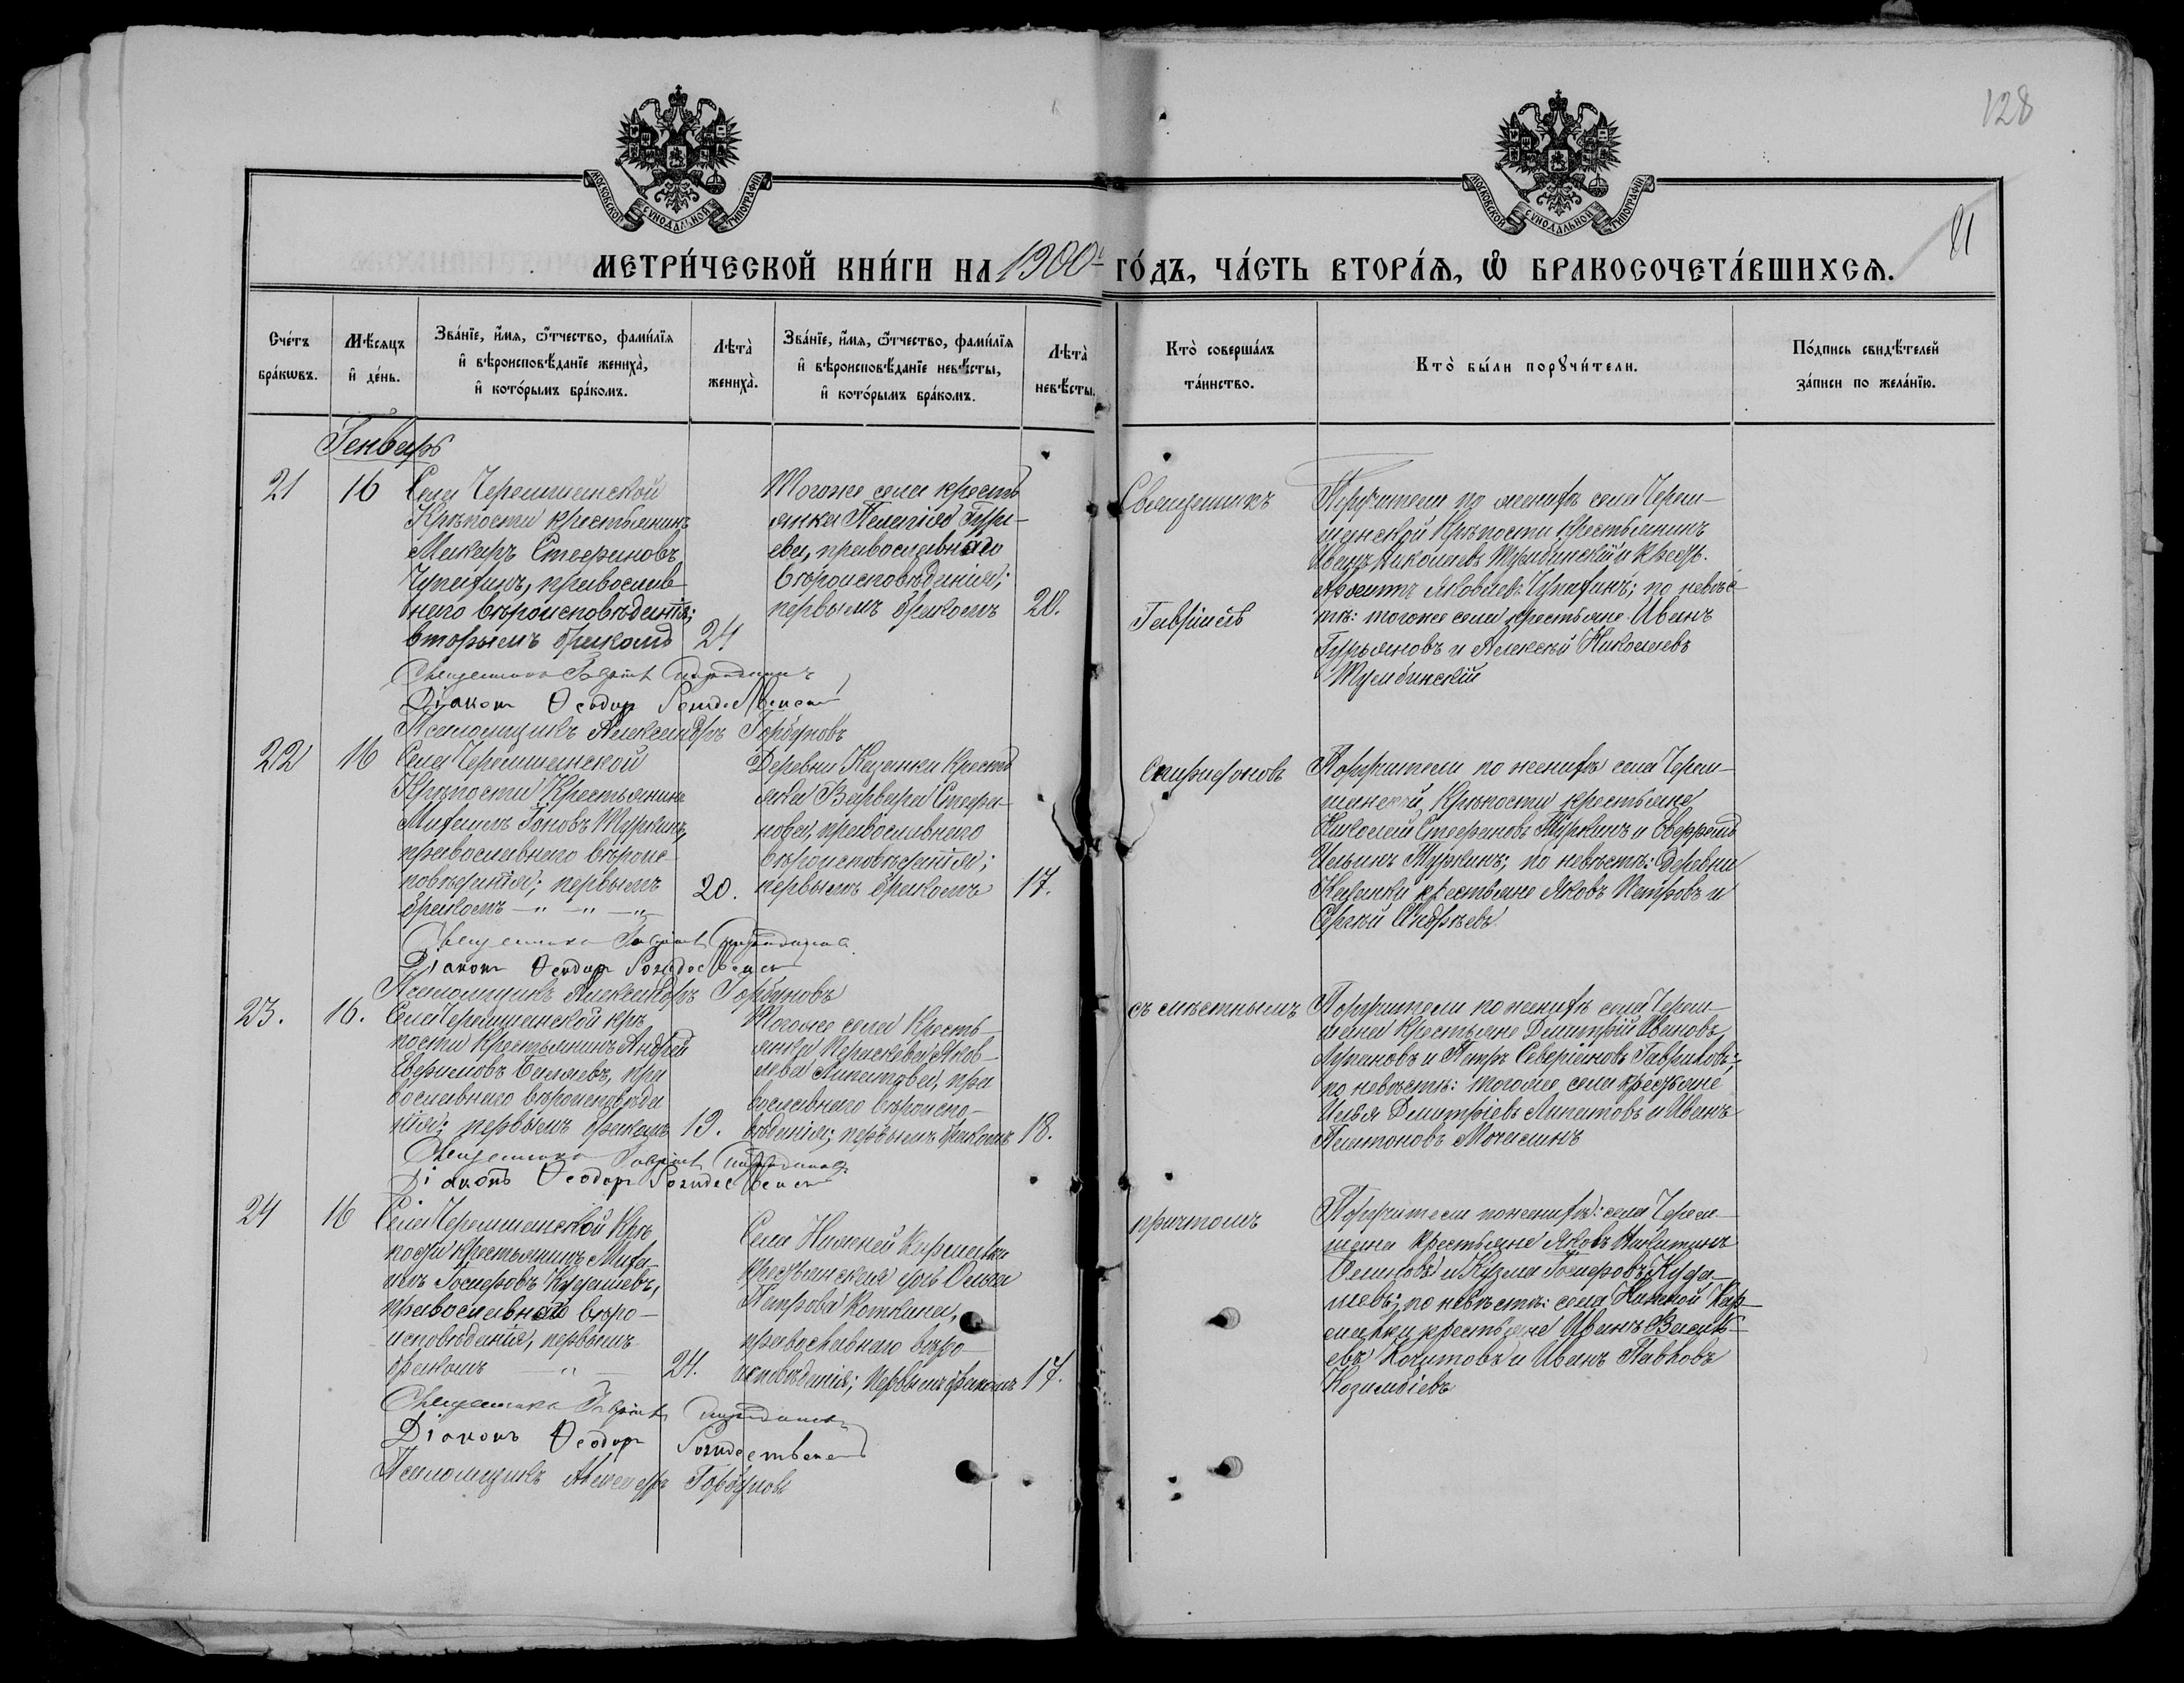 128
МОСКОВСКОЙ СУНОДАЛЬНОЙ ТИПОГРАФІИ
МОСКОВСКОЙ СУНОДАЛЬНОЙ ТИПОГРАФІИ
21
МЕТРИ́ЧЕСКОЙ КНИ́ГИ НА 1900 ГО́ДЪ, ЧА́СТЬ ВТОРА́Ѧ, Ѽ БРАКОСОЧЕТА́ВШИХСѦ.
Сче́тъ бра́кѡвъ.
Мѣ́сяцъ и҆ де́нь.
Зва́нїе, и҆́мя, ѻ҆́тчество, фами́лїя
и҆ вѣроисповѣ́данїе жениха̀,
и҆ кото́рымъ бра́комъ.
Лѣта̀ жениха̀.
Зва́нїе, и҆́мя, ѻ҆́тчество, фами́лїя
и҆ вѣроисповѣ́данїе невѣ́сты,
и҆ кото́рымъ бра́комъ.
Лѣта̀ невѣ́сты.
Кто̀ соверша́лъ та́инство.
Кто̀ бы́ли порꙋчи́тели.
По́дпись свидѣ́телей
за́писи по жела́нїю.
Генварь
21
16
Села Черемшанской
Крѣпости крестьянинъ
Макаръ Стефановъ
православ-
наго вѣроисповѣданія;
вторымъ бракомъ
24
Тогоже села кресть
янка Пелагія Гурь-
ева, православнаго
вѣроисповѣданія;
первымъ бракомъ
20.
Священникъ
Гавріилъ
Поручители по женихѣ села Черем-
шанской Крѣпости крестьянинъ
Иванъ Николаевъ Тумбинскій и
Яковлевъ по невѣс-
тѣ: тогоже села крестьяне Иванъ
Гурьяновъ и Алексѣй Николаевъ
Тумбинскій
Священникъ Гавріилъ
Діаконъ Ѳеодоръ Рождественскій
Псаломщикъ Александръ Горбуновъ
22
16
Села Черемшанской
Крѣпости Крестьянинъ
Михаилъ Іоновъ Туркинъ,
православнаго вѣроис-
повѣданія; первымъ
бракомъ — " — " — "
20.
Деревни Казанки Кресть
янка Варвара Стефа-
нова, православнаго
вѣроисповѣданія;
первымъ бракомъ
17.
Спиридоновъ
Поручители по женихѣ села Черем-
шанской Крѣпости крестьяне
Николай Стефановъ Туркинъ и
Ильинъ Туркинъ; по невѣстѣ: деревни
Казанки крестьяне Яковъ Петровъ и
Сергѣй Андреевъ.
Священникъ Гавріилъ
Діаконъ Ѳеодоръ Рождественскій
Псаломщикъ Александръ Горбуновъ
23.
16.
Села Черемшанской крѣ
пости Крестьянинъ Андрей
Евфимовъ Беляевъ, пра
вославнаго вѣроисповѣда
нія; первымъ бракомъ
19.
Тогоже села Кресть-
янка Параскева Яков-
лева Липатова, пра
вославнаго вѣроиспо-
вѣданія; первымъ бракомъ
18.
съ мѣстнымъ
Поручители по женихѣ села Черем-
шана Крестьяне Димитрій Ивановъ
и Петръ Северіановъ Гавриловъ;
по невѣстѣ: тогоже села крестьяне
Илья Димитріевъ Липатовъ и Иванъ
Платоновъ
Священникъ Гавріилъ
Діаконъ Ѳеодоръ Рождественскій
24
16
Села Черемшанской Крѣ
пости крестьянинъ Миха-
илъ Іосифовъ Кудашевъ,
православнаго вѣро-
исповѣданія, первымъ
бракомъ — " —
24.
Села Нижней Кармалки
крестьянская дочь
Петрова
православнаго вѣро-
исповѣданія; первымъ бракомъ
17.
причтомъ
Поручители по женихѣ: села Черем-
шана крестьяне Яковъ Никитинъ
и Кузма Іосифовъ Куда-
шевъ; по невѣстѣ: села Нижней Кар-
малки крестьяне Иванъ Василь-
евъ и Иванъ Павловъ
Священникъ Гавріилъ
Діаконъ Ѳеодоръ Рождественскій
Псаломщикъ Александръ Горбуновъ